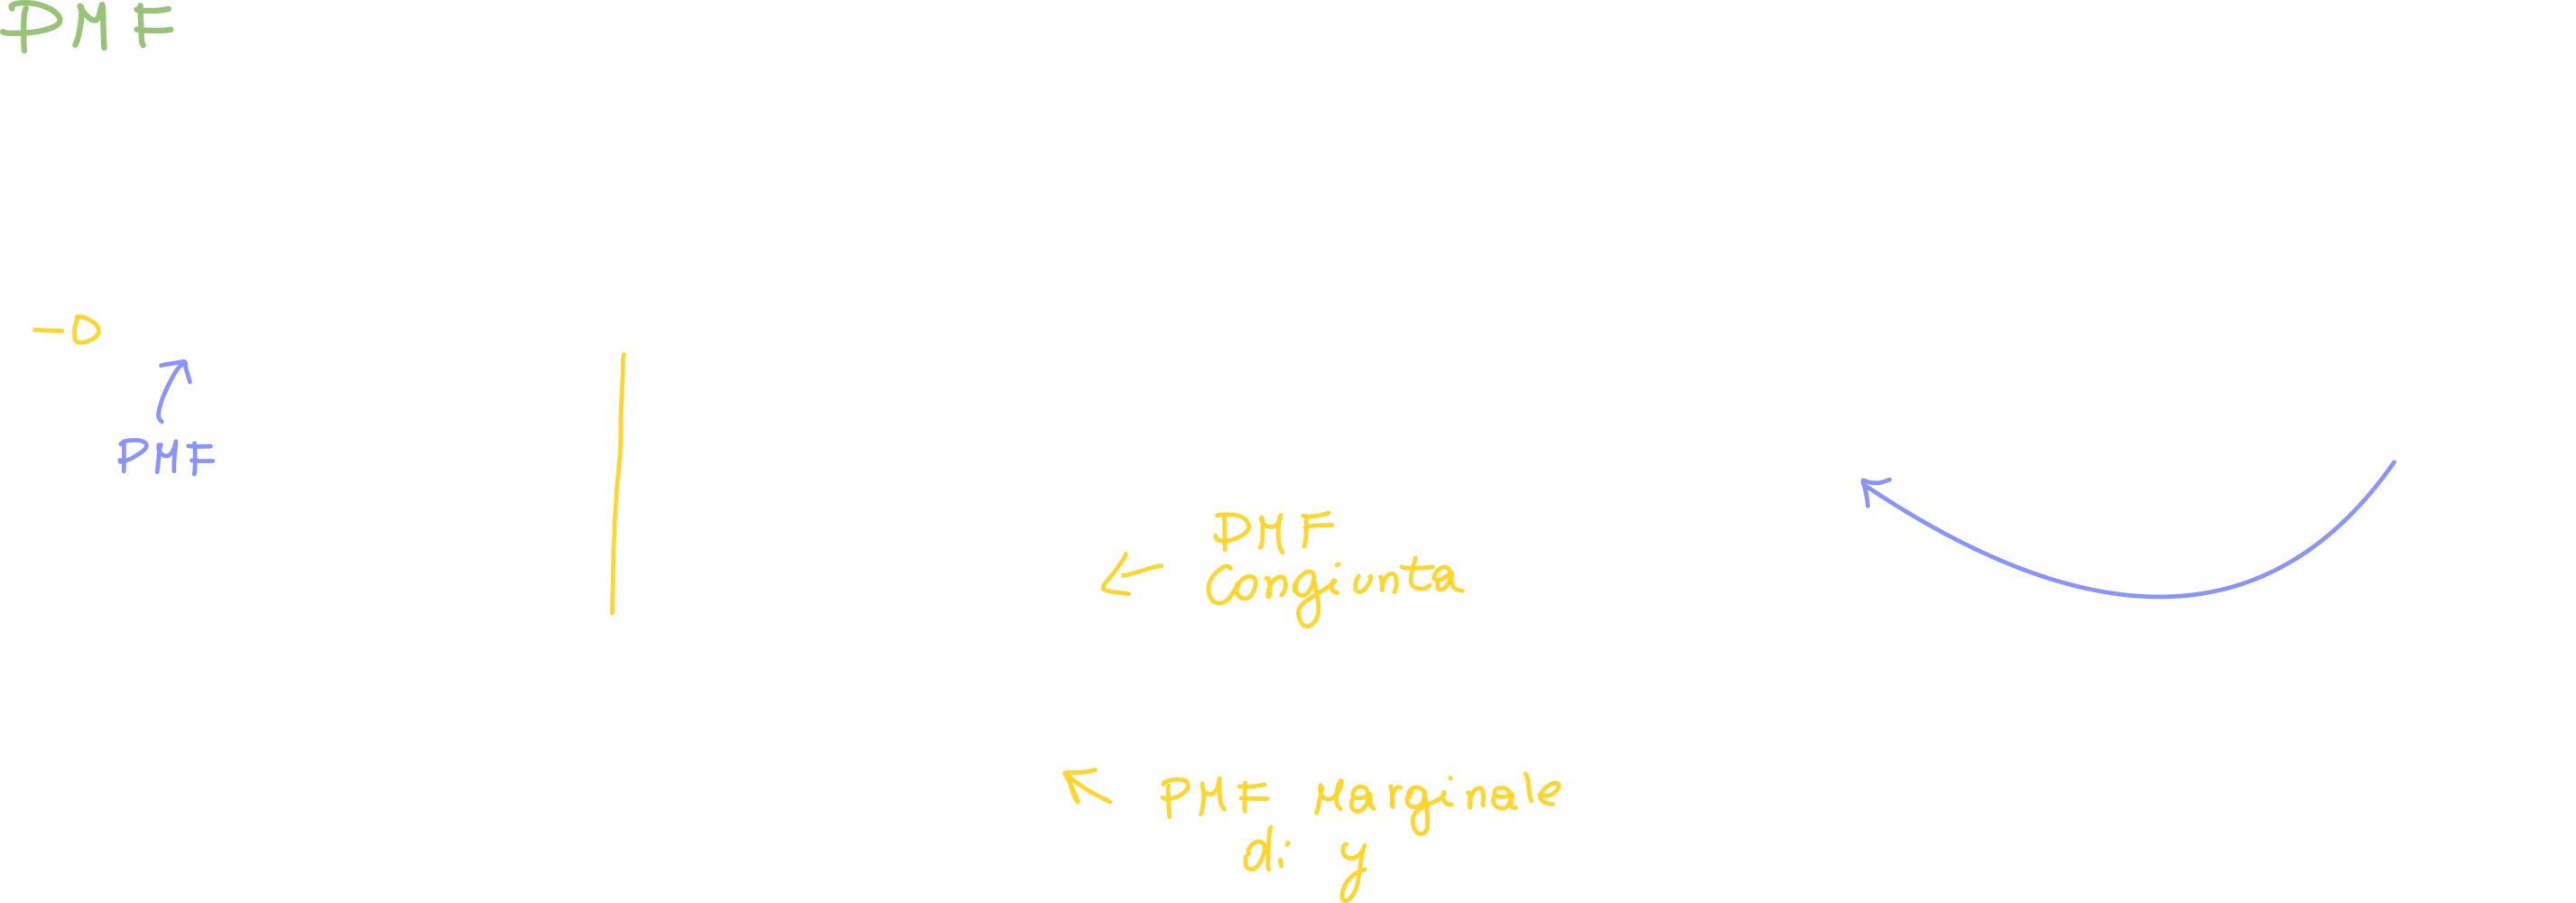 PMF
PMF
PMF
Congiunta
PMF Marginale
di y